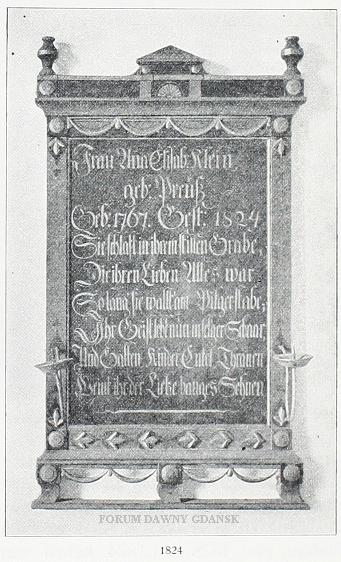 Frau Ana Elisab. Klein
geb. Preuß
Geb. 1767. Gest. 1824
Sie schläft in ihrem stillen Grabe,
Die ihren Lieben Alles war,
So lang sie wallt am Pilgerstabe,
Ihr Geist lebt nun in selger Schaar
Und Gatten Kinder Enkel Thränen
Weint ihr der Liebe banges Sehnen
FORUM DAWNY GDANSK
1824